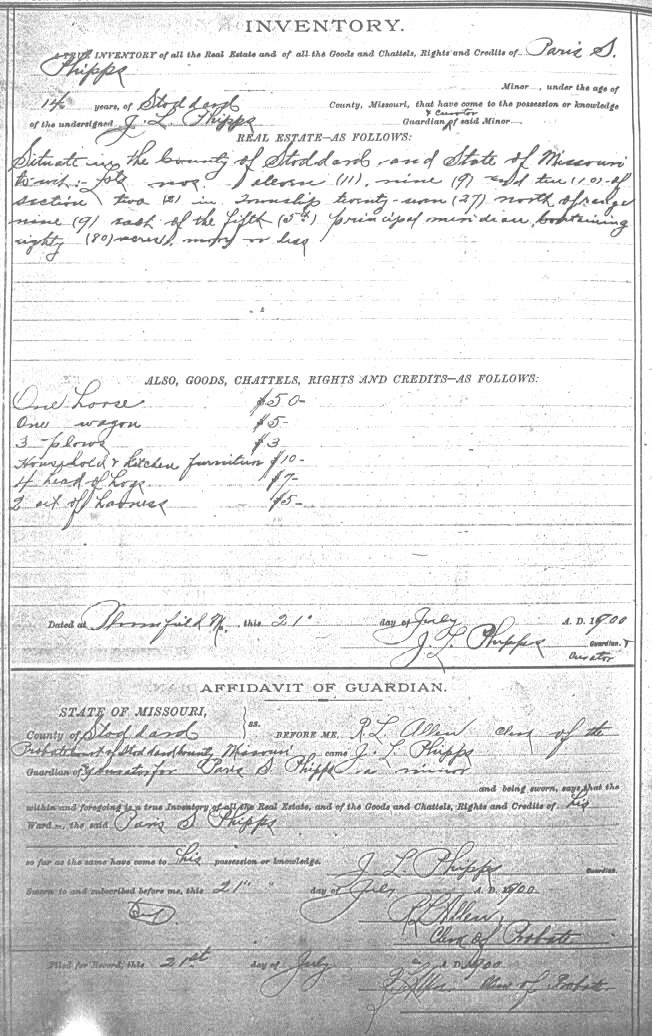 INVENTORY.
INVENTORY of all the Real Estate and of all the Goods and Chattels, Rights and Credits of Paris S.
Phipps
Minor, under the age of
14 years, of Stoddard County, Missouri, that have come to the possession or knowledge
of the undersigned J. L. Phipps Guardian & Curator of said Minor.
REAL ESTATE—AS FOLLOWS:
Situate in the County of Stoddard and State of Missouri
to wit:- Lots nos. eleven (11), nine (9) and ten (10) of
section two (2) in Township twenty-seven (27) north of range
nine (9) east of the fifth (5th) principal meridian, containing
eighty (80) acres, more or less
ALSO, GOODS, CHATTELS, RIGHTS AND CREDITS—AS FOLLOWS:
One horse $50-
One wagon $5-
3 plows $3
Household & kitchen furniture $10-
4 head of hogs $7-
2 set of harness $5-
Dated at Bloomfield Mo., this 21" day of July A. D. 1900
J. L. Phipps Guardian. &
Curator
AFFIDAVIT OF GUARDIAN.
STATE OF MISSOURI,
County of Stoddard } ss. BEFORE ME, R. L. Allen clerk of the
Probate court of Stoddard County, Missouri came J. L. Phipps
Guardian & Curator for Paris S. Phipps a minor
and being sworn, says that the
within and foregoing is a true Inventory of all the Real Estate, and of the Goods and Chattels, Rights and Credits of his
Ward, the said Paris S Phipps
so far as the same have come to his possession or knowledge. J L Phipps Guardian.
Sworn to and subscribed before me, this 21" day of July A. D. 1900.
R L Allen,
Clerk of Probate
Filed for Record, this 21st day of July A. D. 1900
R L Allen Clerk of Probate